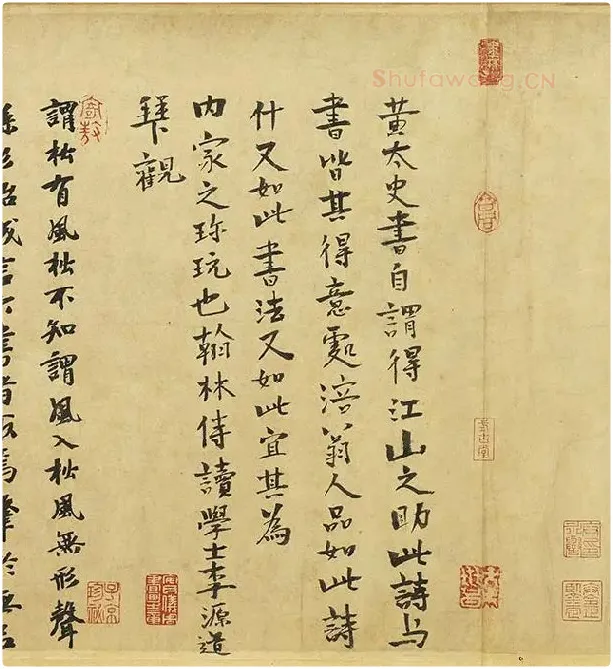 Shufawang.CN
黄太史書自謂得江山之助此詩与
書皆其得意處涪翁人品如此詩
什又如此書法又如此宜其為
内家之珎玩也翰林侍讀學士李源道
拜觀
謂松有風松不知謂風入松風無形聲
式古堂
安氏儀周書畫之章
子京珍秘